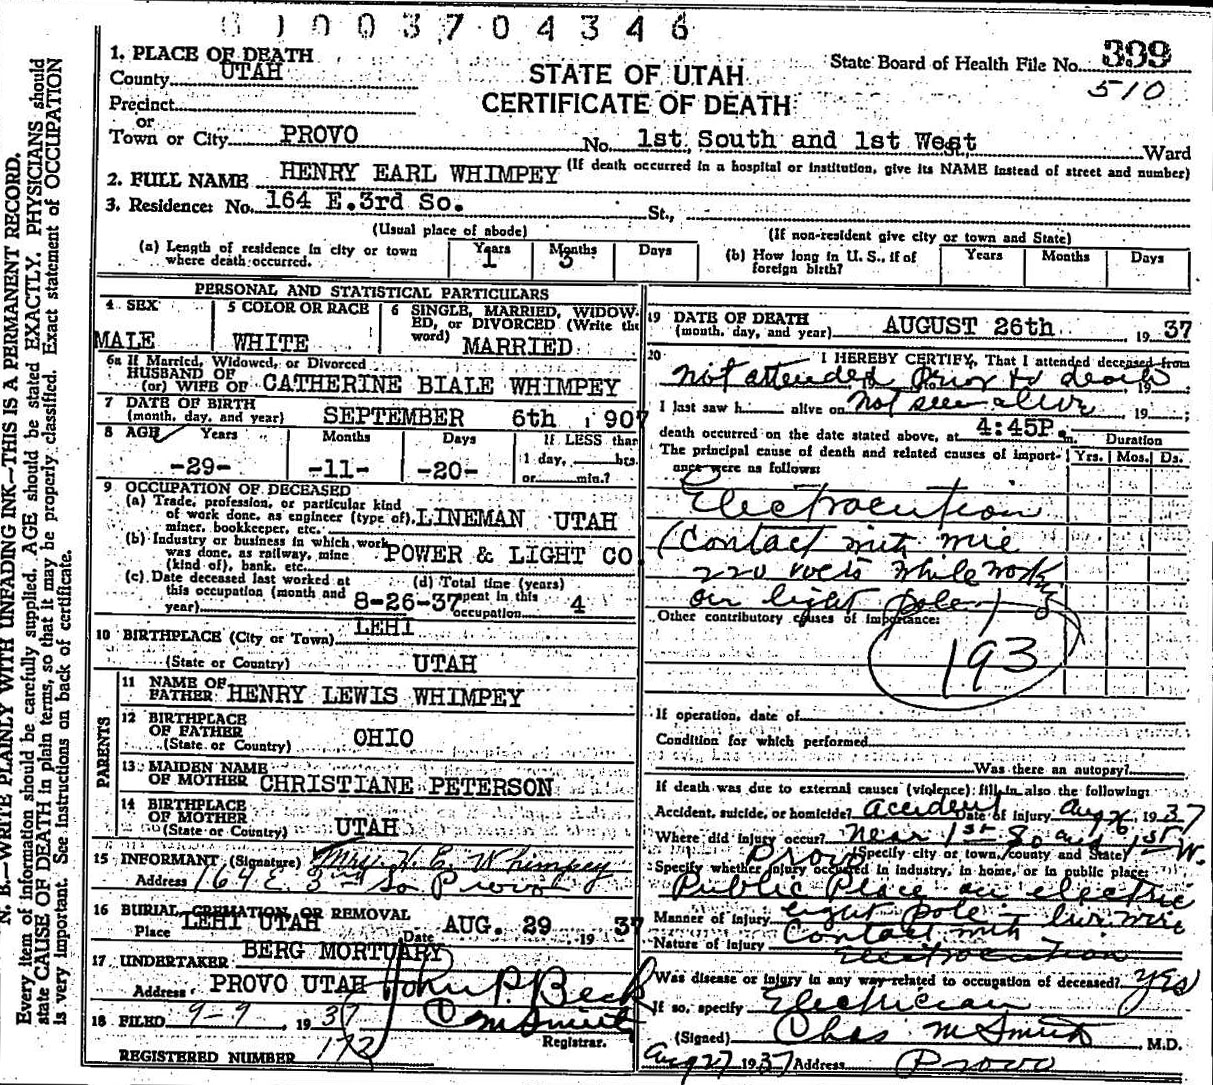 6 1 0 0 3 7 0 4 3 4 6
N. B.—WRITE PLAINLY WITH UNFADING INK—THIS IS A PERMANENT RECORD.
Every item of information should be carefully supplied. AGE should be stated EXACTLY. PHYSICIANS should
state CAUSE OF DEATH in plain terms, so that it may be properly classified. Exact statement of OCCUPATION
is very important. See instructions on back of certificate.
1. PLACE OF DEATH
County UTAH
Precinct
or
Town or City PROVO
STATE OF UTAH
CERTIFICATE OF DEATH
State Board of Health File No. 399
510
No. 1st South and 1st West Ward
(If death occurred in a hospital or institution, give its NAME instead of street and number)
2. FULL NAME HENRY EARL WHIMPEY
3. Residence: No. 164 E.3rd So. St.,
(Usual place of abode) (If non-resident give city or town and State)
(a) Length of residence in city or town where death occurred. Years 1 Months 3 Days
(b) How long in U. S., if of foreign birth? Years Months Days
PERSONAL AND STATISTICAL PARTICULARS
4 SEX MALE
5 COLOR OR RACE WHITE
6 SINGLE, MARRIED, WIDOWED, or DIVORCED (Write the word) MARRIED
6a If Married, Widowed, or Divorced
HUSBAND OF
(or) WIFE OF CATHERINE BIALE WHIMPEY
7 DATE OF BIRTH
(month, day, and year) SEPTEMBER 6th 1907
8 AGE Years Months Days If LESS than
-29- -11- -20- 1 day, hrs.
or min.?
9 OCCUPATION OF DECEASED
(a) Trade, profession, or particular kind
of work done, as engineer (type of), LINEMAN UTAH
miner, bookkeeper, etc.
(b) Industry or business in which work
was done, as railway, mine POWER & LIGHT CO
(kind of), bank, etc.
(c) Date deceased last worked at this occupation (month and year) 8-26-37
(d) Total time (years) spent in this occupation 4
10 BIRTHPLACE (City or Town) LEHI
(State or Country) UTAH
PARENTS
11 NAME OF
FATHER HENRY LEWIS WHIMPEY
12 BIRTHPLACE
OF FATHER
(State or Country) OHIO
13 MAIDEN NAME
OF MOTHER CHRISTIANE PETERSON
14 BIRTHPLACE
OF MOTHER
(State or Country) UTAH
15 INFORMANT (Signature) Mrs. H. E. Whimpey
Address 164 E 3rd So Provo
16 BURIAL, CREMATION, OR REMOVAL
Place LEHI UTAH Date AUG. 29 1937
17 UNDERTAKER BERG MORTUARY
Address PROVO UTAH John P. Beck
18 FILED 9-9, 1937 C M Smith
Registrar.
REGISTERED NUMBER 172
19 DATE OF DEATH
(month, day, and year) AUGUST 26th 1937
20 I HEREBY CERTIFY, That I attended deceased from
Not attended prior to death 19
I last saw h alive on Not seen alive 19 ;
death occurred on the date stated above, at 4:45P. m. Duration
The principal cause of death and related causes of importance were as follows: Yrs. Mos. Ds.
Electrocution
(Contact with wire
220 volts while working
on light pole)
Other contributory causes of importance:
193
If operation, date of
Condition for which performed
Was there an autopsy?
If death was due to external causes (violence) fill in also the following:
Accident, suicide, or homicide? Accident Date of injury Aug 26 1937
Where did injury occur? Near 1st So and 1st W.
Provo (Specify city or town, county and State)
Specify whether injury occurred in industry, in home, or in public place:
Public Place on electric
light pole - live wire
Manner of injury Contact with
Nature of injury Electrocution
Was disease or injury in any way related to occupation of deceased? yes
If so, specify Electrician
(Signed) Chas M Smith M.D.
Aug 27 1937 Address Provo